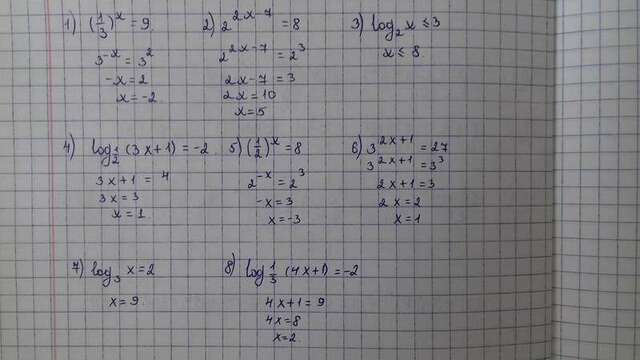 1) (1/3)^x = 9
3^-x = 3^2
-x = 2
x = -2
2) 2^2x-7 = 8
2^2x-7 = 2^3
2x-7 = 3
2x = 10
x = 5
3) log_2 x ≤ 3
x ≤ 8
4) log_1/2 (3x+1) = -2
3x+1 = 4
3x = 3
x = 1
5) (1/2)^x = 8
2^-x = 2^3
-x = 3
x = -3
6) 3^2x+1 = 27
3^2x+1 = 3^3
2x+1 = 3
2x = 2
x = 1
7) log_3 x = 2
x = 9
8) log_1/3 (4x+1) = -2
4x+1 = 9
4x = 8
x = 2